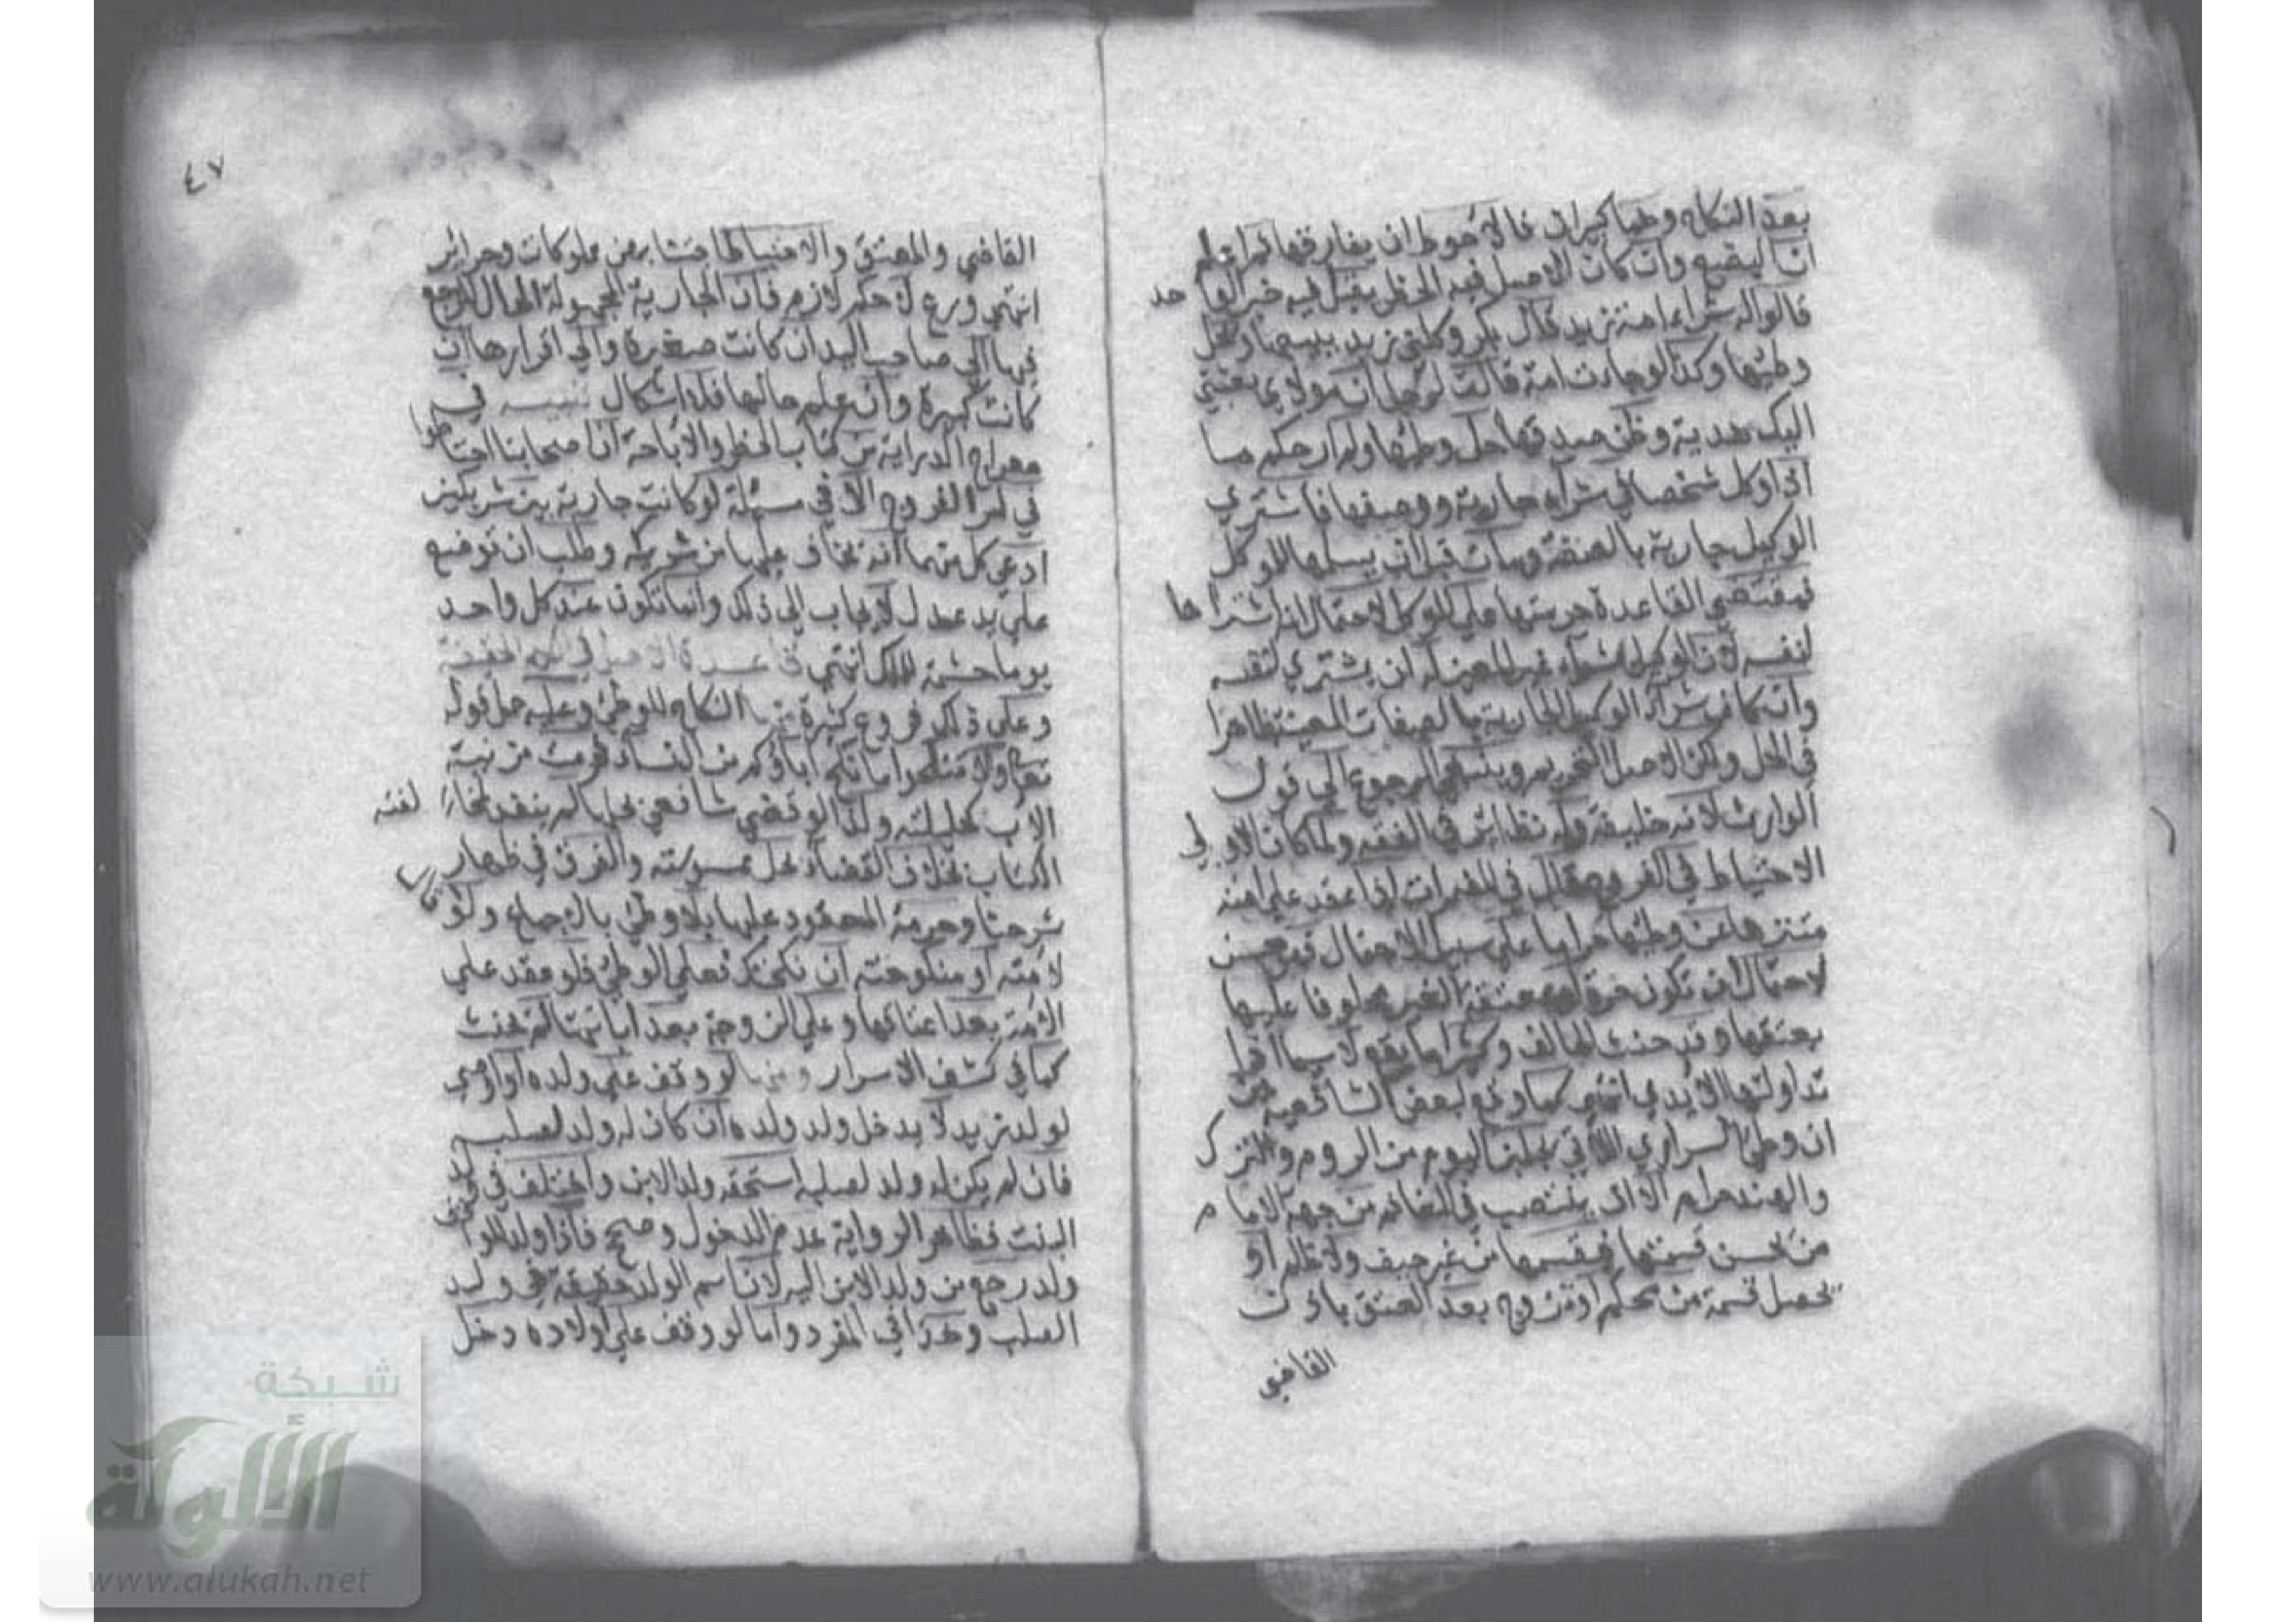 بعد النكاح وهما كبيران فالاحوط ان يفارقها ثم اعلم
ان البضع وان كان الاصل فيه الحظر يقبل فيه خبر الواحد
قالوا له شراء امة زيد قال بكر وكلني زيد ببيعها وتحل
وطئها وكذا لو جاءت امة قالت لرجل ان مولاي بعثني
اليك هدية وظن صدقها حل وطئها ولم ار حكم ما
اذا وكل شخصا في شراء جارية ووصفها فاشتري
الوكيل جارية بالصفة ومات قبل ان يسلمها للموكل
فمقتضي القاعدة حرمتها علي الموكل لاحتمال انه اشتراها
لنفسه لان الوكيل بشراء غير المعين له ان يشتري لنفسه
وان كان شراء الوكيل الجارية بالصفات المعينة ظاهرا
في الحل ولكن الاصل التحريم وينبغي الرجوع الي قول
الوارث لانه خليفة وله نظائر في الفقه ولما كان الاولي
الاحتياط في الفروج قال في المضمرات اذا عقد علي امته
متنزها عن وطئها حراما علي سبيل الاحتمال فهو حسن
لاحتمال ان تكون حرة او معتقة الغير محلوفا عليها
بعتقها وقد حنث الحالف وكثيرا ما يقع لا سيما اذا
تداولتها الايدي انتهي فما وقع لبعض الشافعية من
ان وطئ السراري اللاتي يجلبن اليوم من الروم والترك
والهند حرام الا ان ينتصب في المغانم من جهة الامام
من يحسن قسمتها فيقسمها من غير حيف ولا ظلم او
تحصل قسمة من محكم او تزوج بعد العتق باذن
القاضي
٤٧
القاضي والمعتق والاحتياط اجتنابهن مملوكات وحرائر
انتهي ورع لا حكم لازم فان الجارية المجهولة الحال المرجع
فيها الي صاحب اليد ان كانت صغيرة والي اقرارها ان
كانت كبيرة وان علم حالها فلا اشكال تنبيه في
معراج الدراية من كتاب الحظر والاباحة ان اصحابنا احتاطوا
في امر الفروج الا في مسئلة لو كانت جارية بين شريكين
ادعي كل منهما انه يخاف عليها من شريكه وطلب ان توضع
علي يد عدل لا يجاب الي ذلك وانما تكون عند كل واحد
يوما حشمة للملك انتهي قاعدة الاصل في الكلام الحقيقة
وعلي ذلك فروع كثيرة منها النكاح للوطئ وعليه حمل قوله
تعالي ولا تنكحوا ما نكح اباؤكم من النساء فحرمت مزنية
الاب كحليلته ولذا لو قضي شافعي بحلها لم ينفذ لمخالفته
الكتاب بخلاف القضاء بحل ممسوسته والفرق في ظهار
شرحنا وحرمة المعقود عليها بلا وطئ بالاجماع ولو قال
لامته او منكوحته ان نكحتك فعلي الوطئ فلو عقد علي
الامة بعد اعتاقها وعلي الزوجة بعد ابانتها لم يحنث
كما في كشف الاسرار ومنها لو وقف علي ولده او اوصي
لولد زيد لا يدخل ولد ولده ان كان له ولد لصلبه
فان لم يكن له ولد لصلبه استحقه ولد الابن واختلف في ولد
البنت فظاهر الرواية عدم الدخول وصحح فاذا ولد للواقف
ولد رجع من ولد الابن اليه لان اسم الولد حقيقة في ولد
الصلب وهذا في المفرد واما لو وقف علي اولاده دخل
شبكة
الألوكة
www.alukah.net